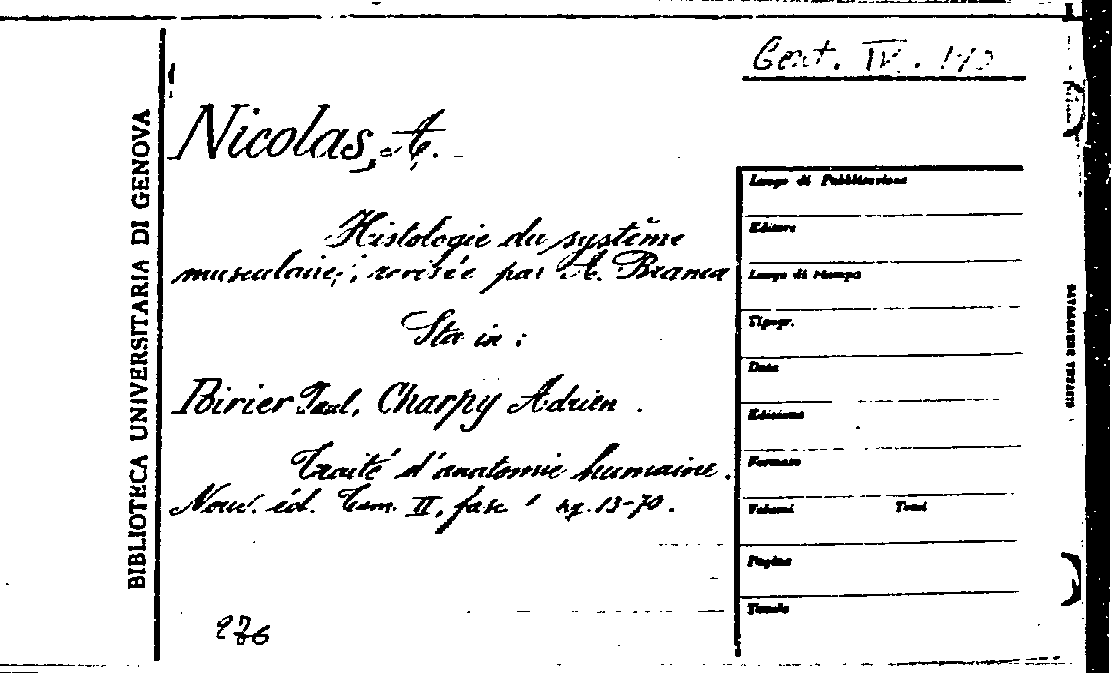 BIBLIOTECA UNIVERSITARIA DI GENOVA
Gent. IV.
Nicolas, A.
Histologie du système
musculaire; revisée par A. Branca
Sta in:
Poirier Paul, Charpy Adrien.
Traité d'anatomie humaine.
Nouv. éd. Tom. II, fasc 1 pg. 13-70.
276
Luogo di Pubblicazione
Editore
Luogo di stampa
Tipogr.
Data
Edizione
Formato
Volumi Tomi
Pagine
Tavole